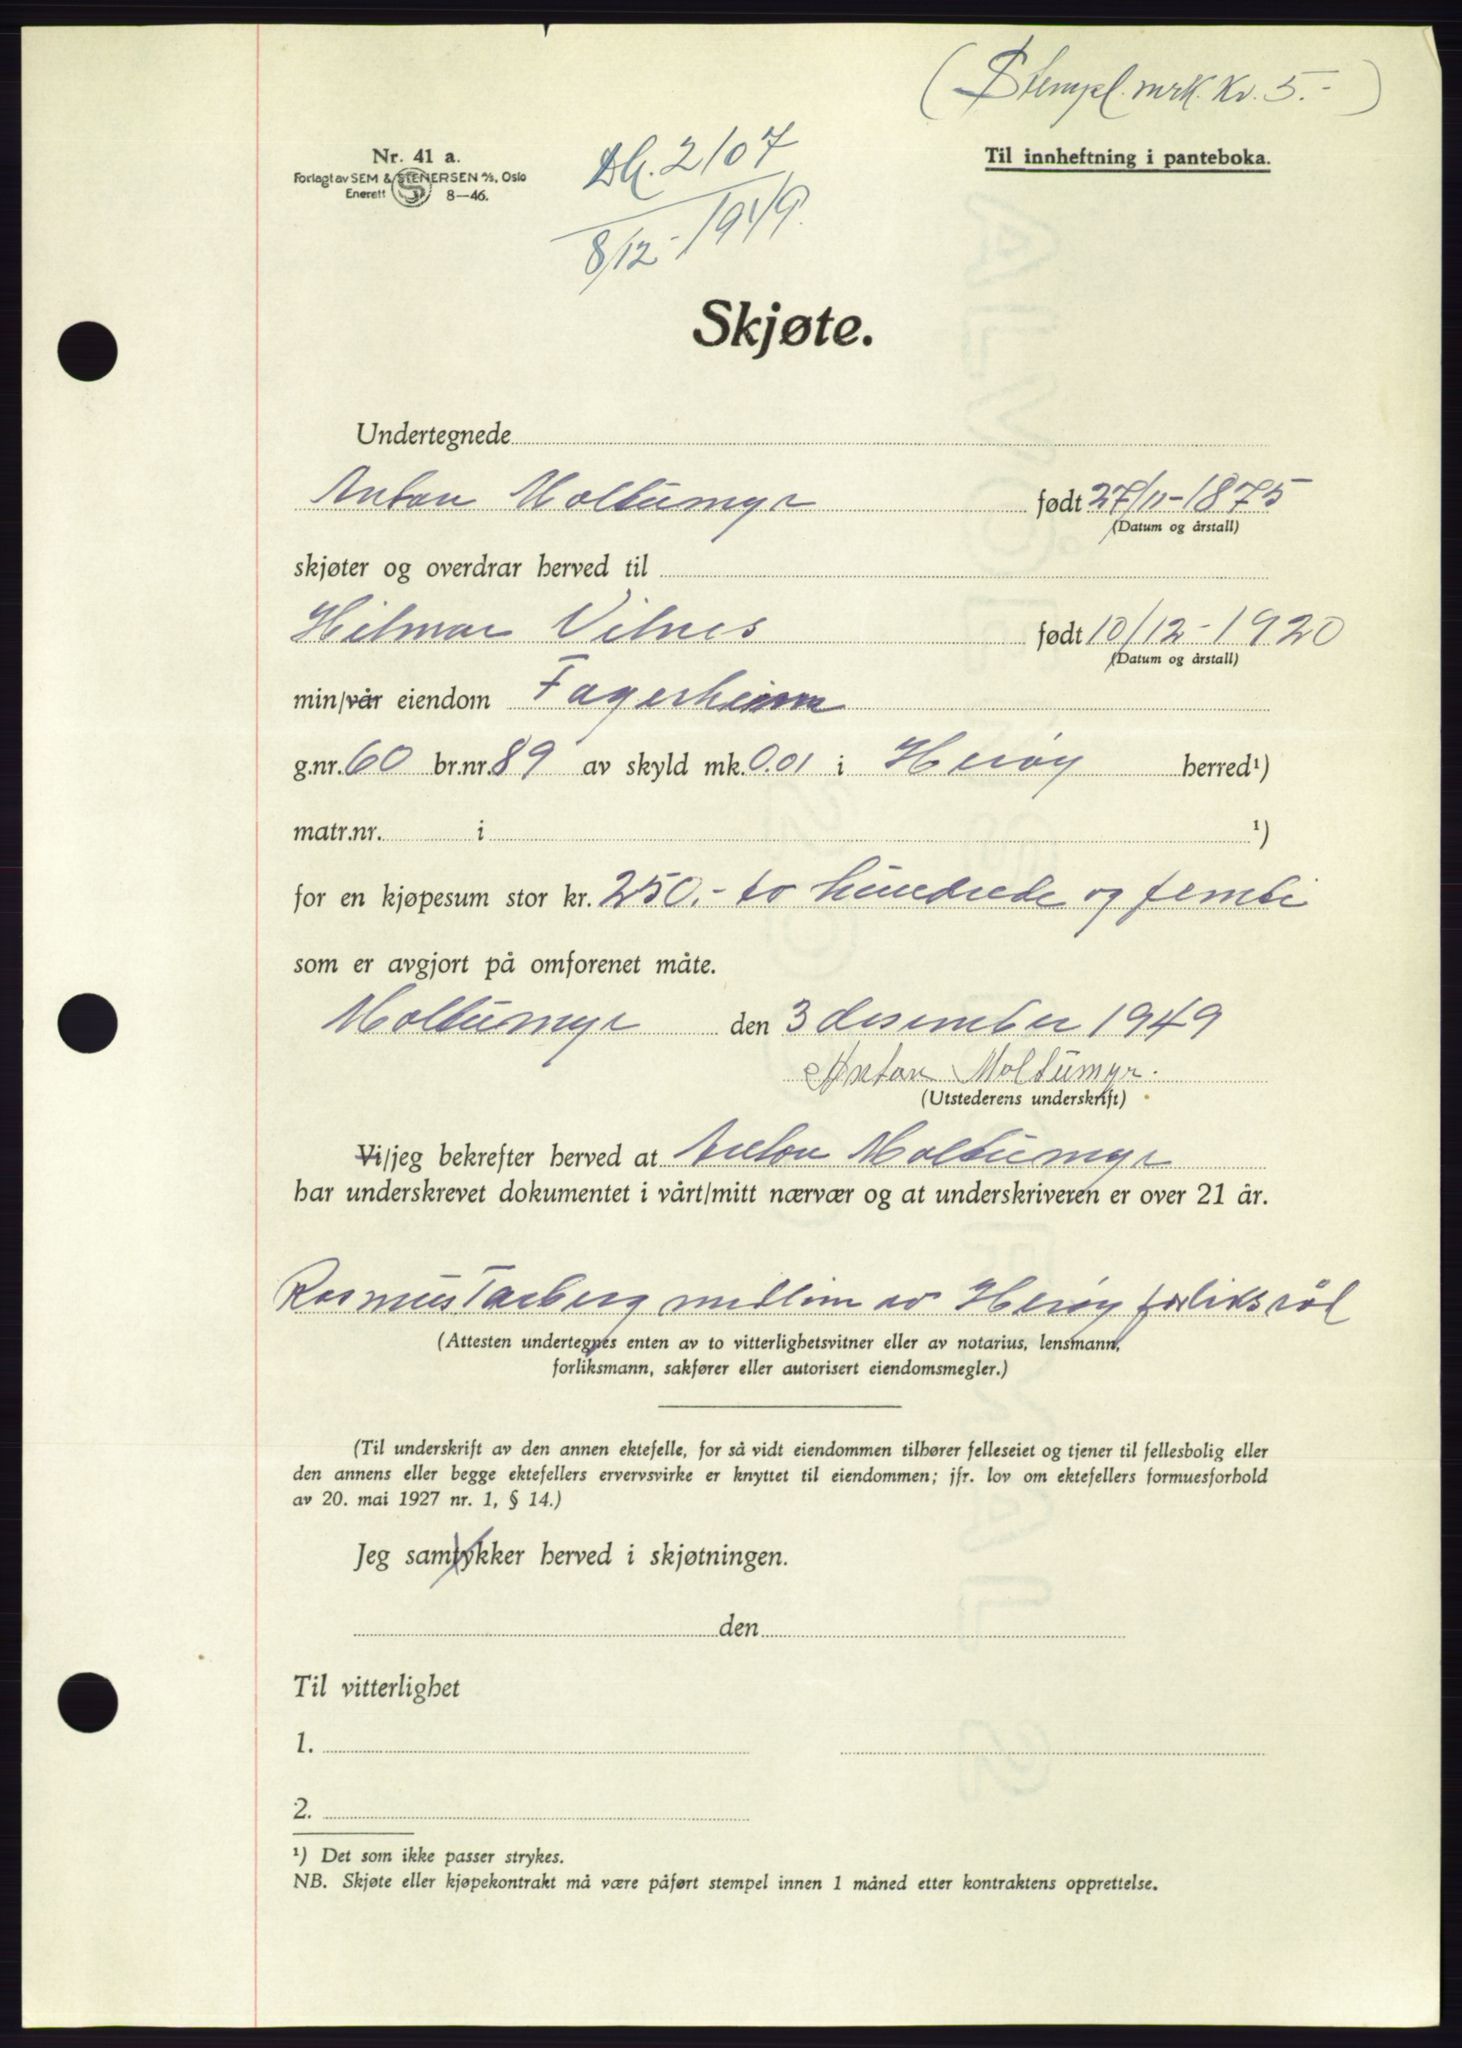 (Stempl. mrk. Kr. 5.-)
Nr. 41 a.
Forlagt av SEM & STENERSEN A/S, Oslo
Enerett 8—46.
Dk. 2107
8/12-1949.
Til innheftning i panteboka.
Skjøte.
Undertegnede
Anton Moltumyr født 27/11-1875
(Datum og årstall)
skjøter og overdrar herved til
Hilmar Vilnes født 10/12-1920
(Datum og årstall)
min/vår eiendom Fagerheim
g.nr. 60 br.nr. 89 av skyld mk. 0.01 i Herøy herred¹)
matr.nr. i ¹)
for en kjøpesum stor kr. 250.- to hundrede og femti
som er avgjort på omforenet måte.
Moltumyr den 3 desember 1949
Anton Moltumyr.
(Utstederens underskrift)
Vi/jeg bekrefter herved at Anton Moltumyr
har underskrevet dokumentet i vårt/mitt nærvær og at underskriveren er over 21 år.
Rasmus Tarberg medlim av Herøy forliksråd
(Attesten undertegnes enten av to vitterlighetsvitner eller av notarius, lensmann,
forliksmann, sakfører eller autorisert eiendomsmegler.)
(Til underskrift av den annen ektefelle, for så vidt eiendommen tilhører felleseiet og tjener til fellesbolig eller
den annens eller begge ektefellers ervervsvirke er knyttet til eiendommen; jfr. lov om ektefellers formuesforhold
av 20. mai 1927 nr. 1, § 14.)
Jeg samtykker herved i skjøtningen.
den
Til vitterlighet
1.
2.
¹) Det som ikke passer strykes.
NB. Skjøte eller kjøpekontrakt må være påført stempel innen 1 måned etter kontraktens opprettelse.